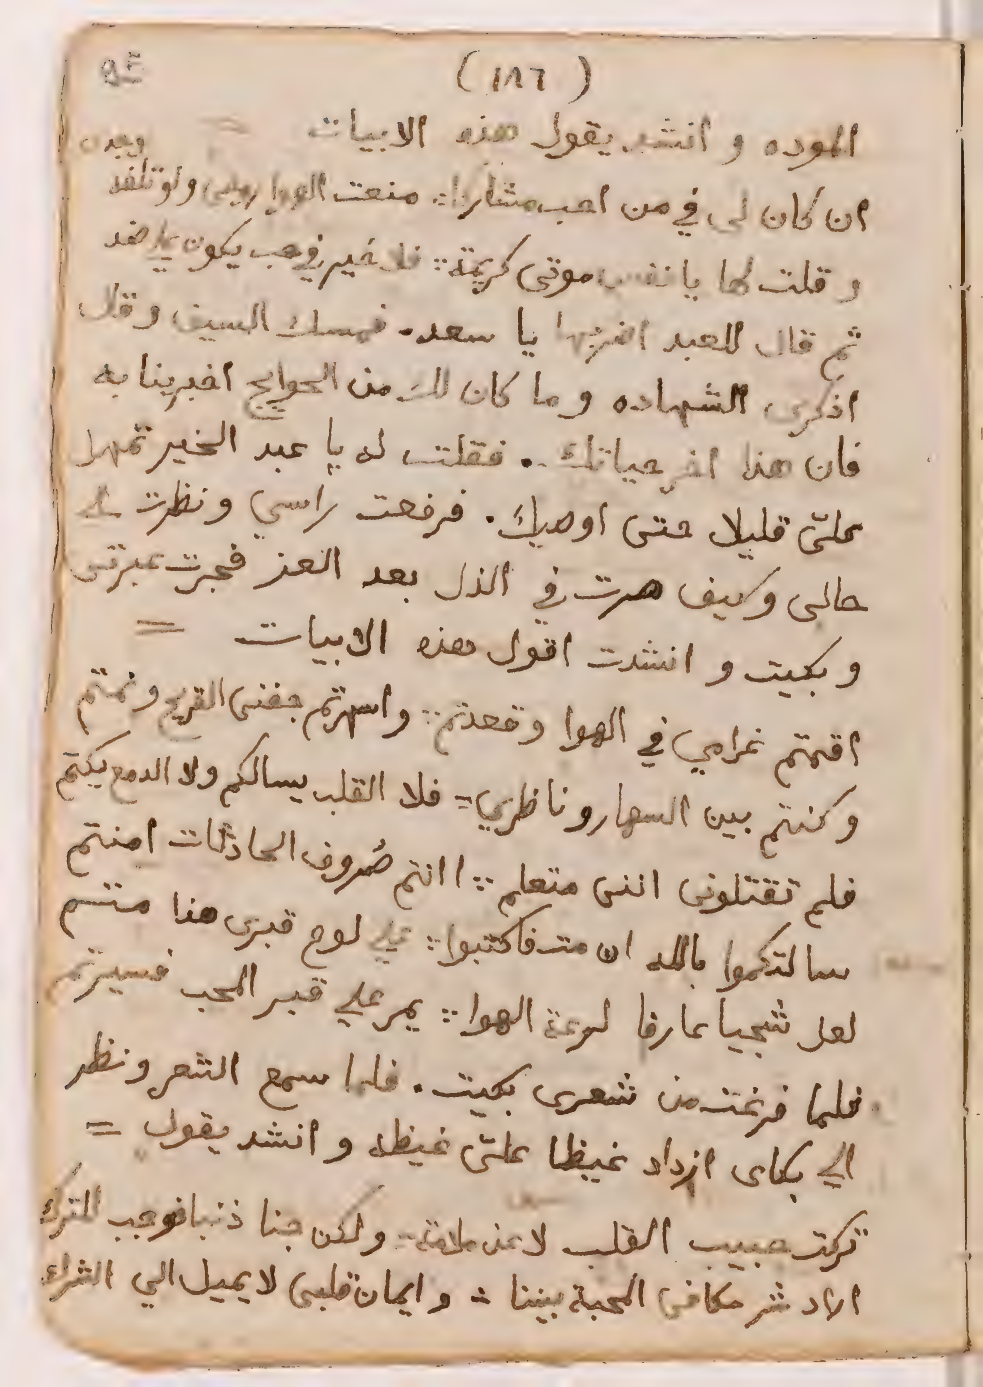 (١٨٦)
الموده و انشد يقول هذه الابيات =
وجدى
ان كان لى في من احب مشاركا :: منعت الهوا روحى ولو تلفه
و قلت لها يا نفس موتى كريمة :: فلا خير في حب يكون بها ضد
ثم قال للعبد اضربها يا سعد . فمسك السيف و قال
اذكرى الشهاده و ما كان لك من الحوايج اخبرينا به
فان هذا اخر حياتك . فقلت له يا عبد الخير تمهل
علىّ قليلا حتى اوصيك . فرفعت راسي و نظرت الى
حالى وكيف صرت في الذل بعد العز فجرت عبرتى
و بكيت و انشدت اقول هذه الابيات =
اقمتم غرامي في الهوا وقعدتم :: واسهرتم جفنى القريح ونمتم
وكنتم بين السهار وناظري = فلا القلب يسالكم ولا الدمع يكتم
فلم تقتلونى اننى متعلم :: اانتم صُروف الحادثات امنتم
سالتكموا بالله ان مت فاكتبوا :: علي لوح قبرى هذا متيم
لعل شجيا عارفا لوعة الهوا :: يمر علي قبر المحب فسيرتم
فلما فرغت من شعرى بكيت . فلما سمع الشعر ونظر
الي بكاى ازداد غيظا علىّ غيظه و انشد يقول =
تركت حبيب القلب لا عن ملامة = ولكن جنا ذنبا فوجب للترك
اراد شر مكافى المحبة بيننا :: وايمان قلبى لا يميل الي الشراك